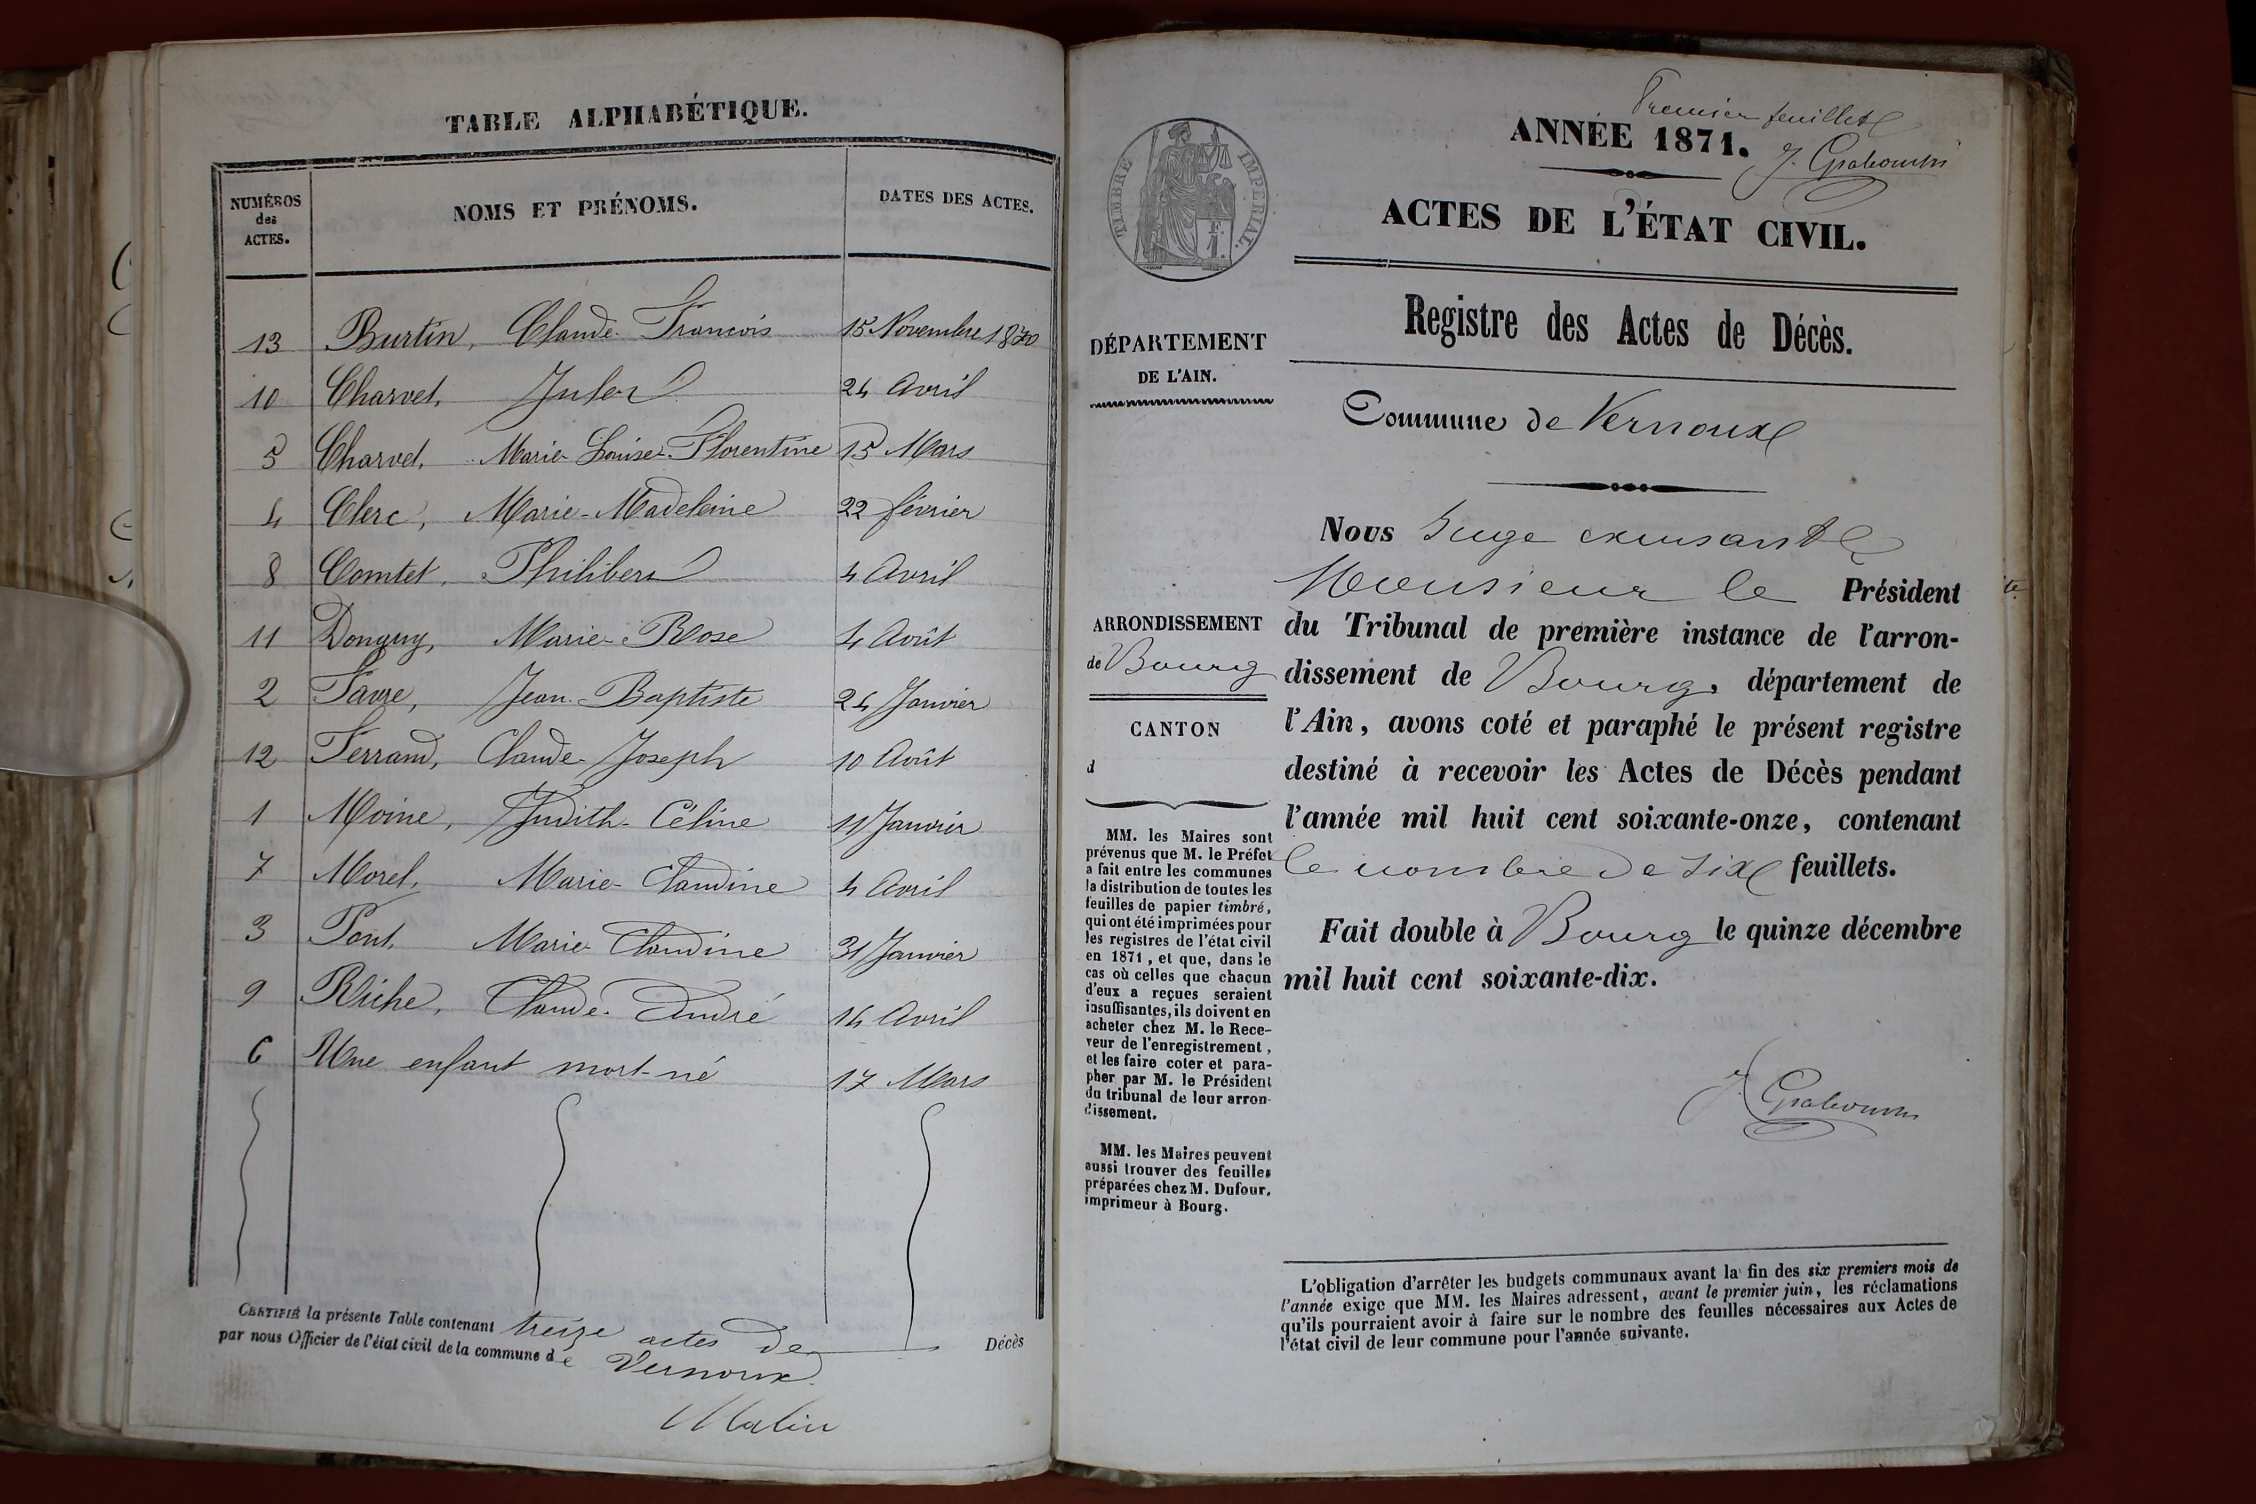 TABLE ALPHABÉTIQUE.
NUMÉROS
des
ACTES.
NOMS ET PRÉNOMS.
DATES DES ACTES.
13 Burtin, Claude François 15 Novembre 1870
10 Charvet, Jules 24 Avril
5 Charvet, Marie Louise Florentine 15 Mars
4 Clerc, Marie-Madeleine 22 février
8 Comtet, Philibert 4 Avril
11 Donguy, Marie-Rose 4 Août
2 Favre, Jean-Baptiste 24 Janvier
12 Ferrand, Claude-Joseph 10 Août
1 Moine, Judith-Céline 11 Janvier
7 Morel, Marie-Claudine 4 Avril
3 Pont, Marie Claudine 31 Janvier
9 Riche, Claude-André 14 Avril
6 Une enfant mort-né 17 Mars
CERTIFIÉ la présente Table contenant treize actes de Décès
par nous Officier de l'état civil de la commune de Vernoux
Premier feuillet
ANNÉE 1871.
TIMBRE IMPERIAL.
ACTES DE L'ÉTAT CIVIL.
Registre des Actes de Décès.
DÉPARTEMENT
DE L'AIN.
Commune de Vernoux
ARRONDISSEMENT
de Bourg
CANTON
d
MM. les Maires sont
prévenus que M. le Préfet
a fait entre les communes
la distribution de toutes les
feuilles de papier timbré,
qui ont été imprimées pour
les registres de l'état civil
en 1871, et que, dans le
cas où celles que chacun
d'eux a reçues seraient
insuffisantes, ils doivent en
acheter chez M. le Rece-
veur de l'enregistrement,
et les faire coter et para-
pher par M. le Président
du tribunal de leur arron-
dissement.
MM. les Maires peuvent
aussi trouver des feuilles
préparées chez M. Dufour,
imprimeur à Bourg.
Nous Juge
Monsieur le Président
du Tribunal de première instance de l'arron-
dissement de Bourg, département de
l'Ain, avons coté et paraphé le présent registre
destiné à recevoir les Actes de Décès pendant
l'année mil huit cent soixante-onze, contenant
le nombre de six feuillets.
Fait double à Bourg le quinze décembre
mil huit cent soixante-dix.
L'obligation d'arrêter les budgets communaux avant la fin des six premiers mois de
l'année exige que MM. les Maires adressent, avant le premier juin, les réclamations
qu'ils pourraient avoir à faire sur le nombre des feuilles nécessaires aux Actes de
l'état civil de leur commune pour l'année suivante.